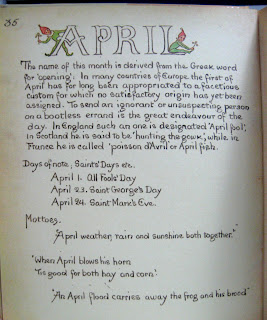 35
APRIL
"The name of this month is derived from the Greek word
for 'opening'. In many countries of Europe the first of
April has for long been appropriated to a facetious
custom for which no satisfactory origin has yet been
assigned. To send an ignorant or unsuspecting person
on a bootless errand is the great endeavour of the
day. In England such an one is designated 'April fool',
in Scotland he is said to be 'hunting the gowk', while in
France he is called 'poisson d'Avril or April fish.
Days of note, Saint's Days etc.
April 1. All Fools' Day
April 23. Saint George's Day
April 24. Saint Mark's Eve.
Mottoes.
"April weather, rain and sunshine both together."
"When April blows his horn
'Tis good for both hay and corn."
"An April flood carries away the frog and his brood"